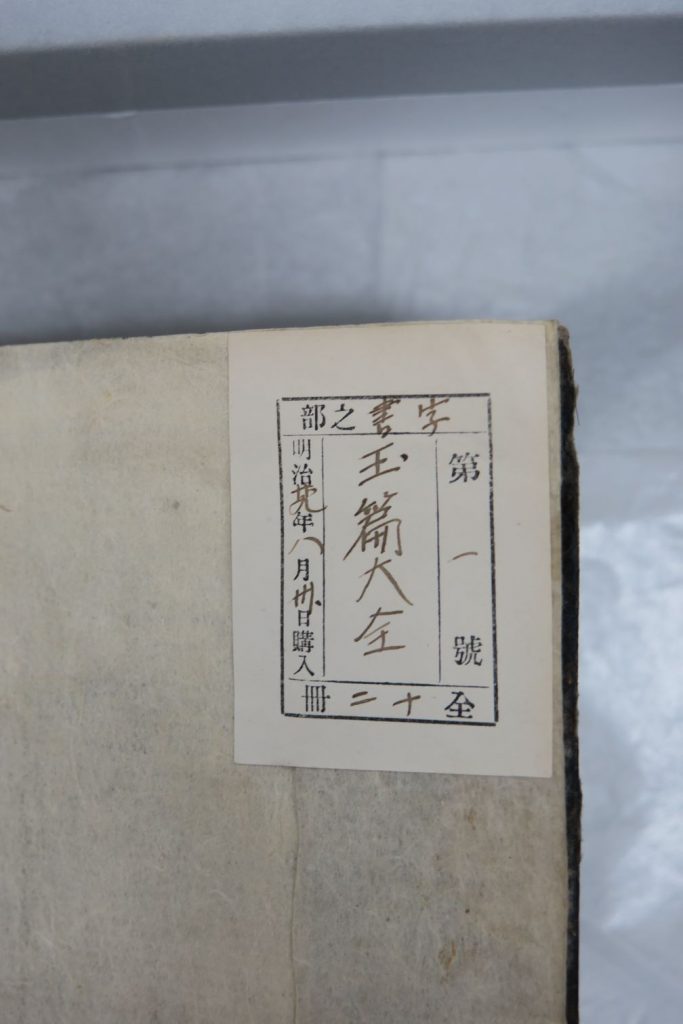 字書之部
第一號
玉篇大全
明治廿九年八月卅日購入
全十二冊